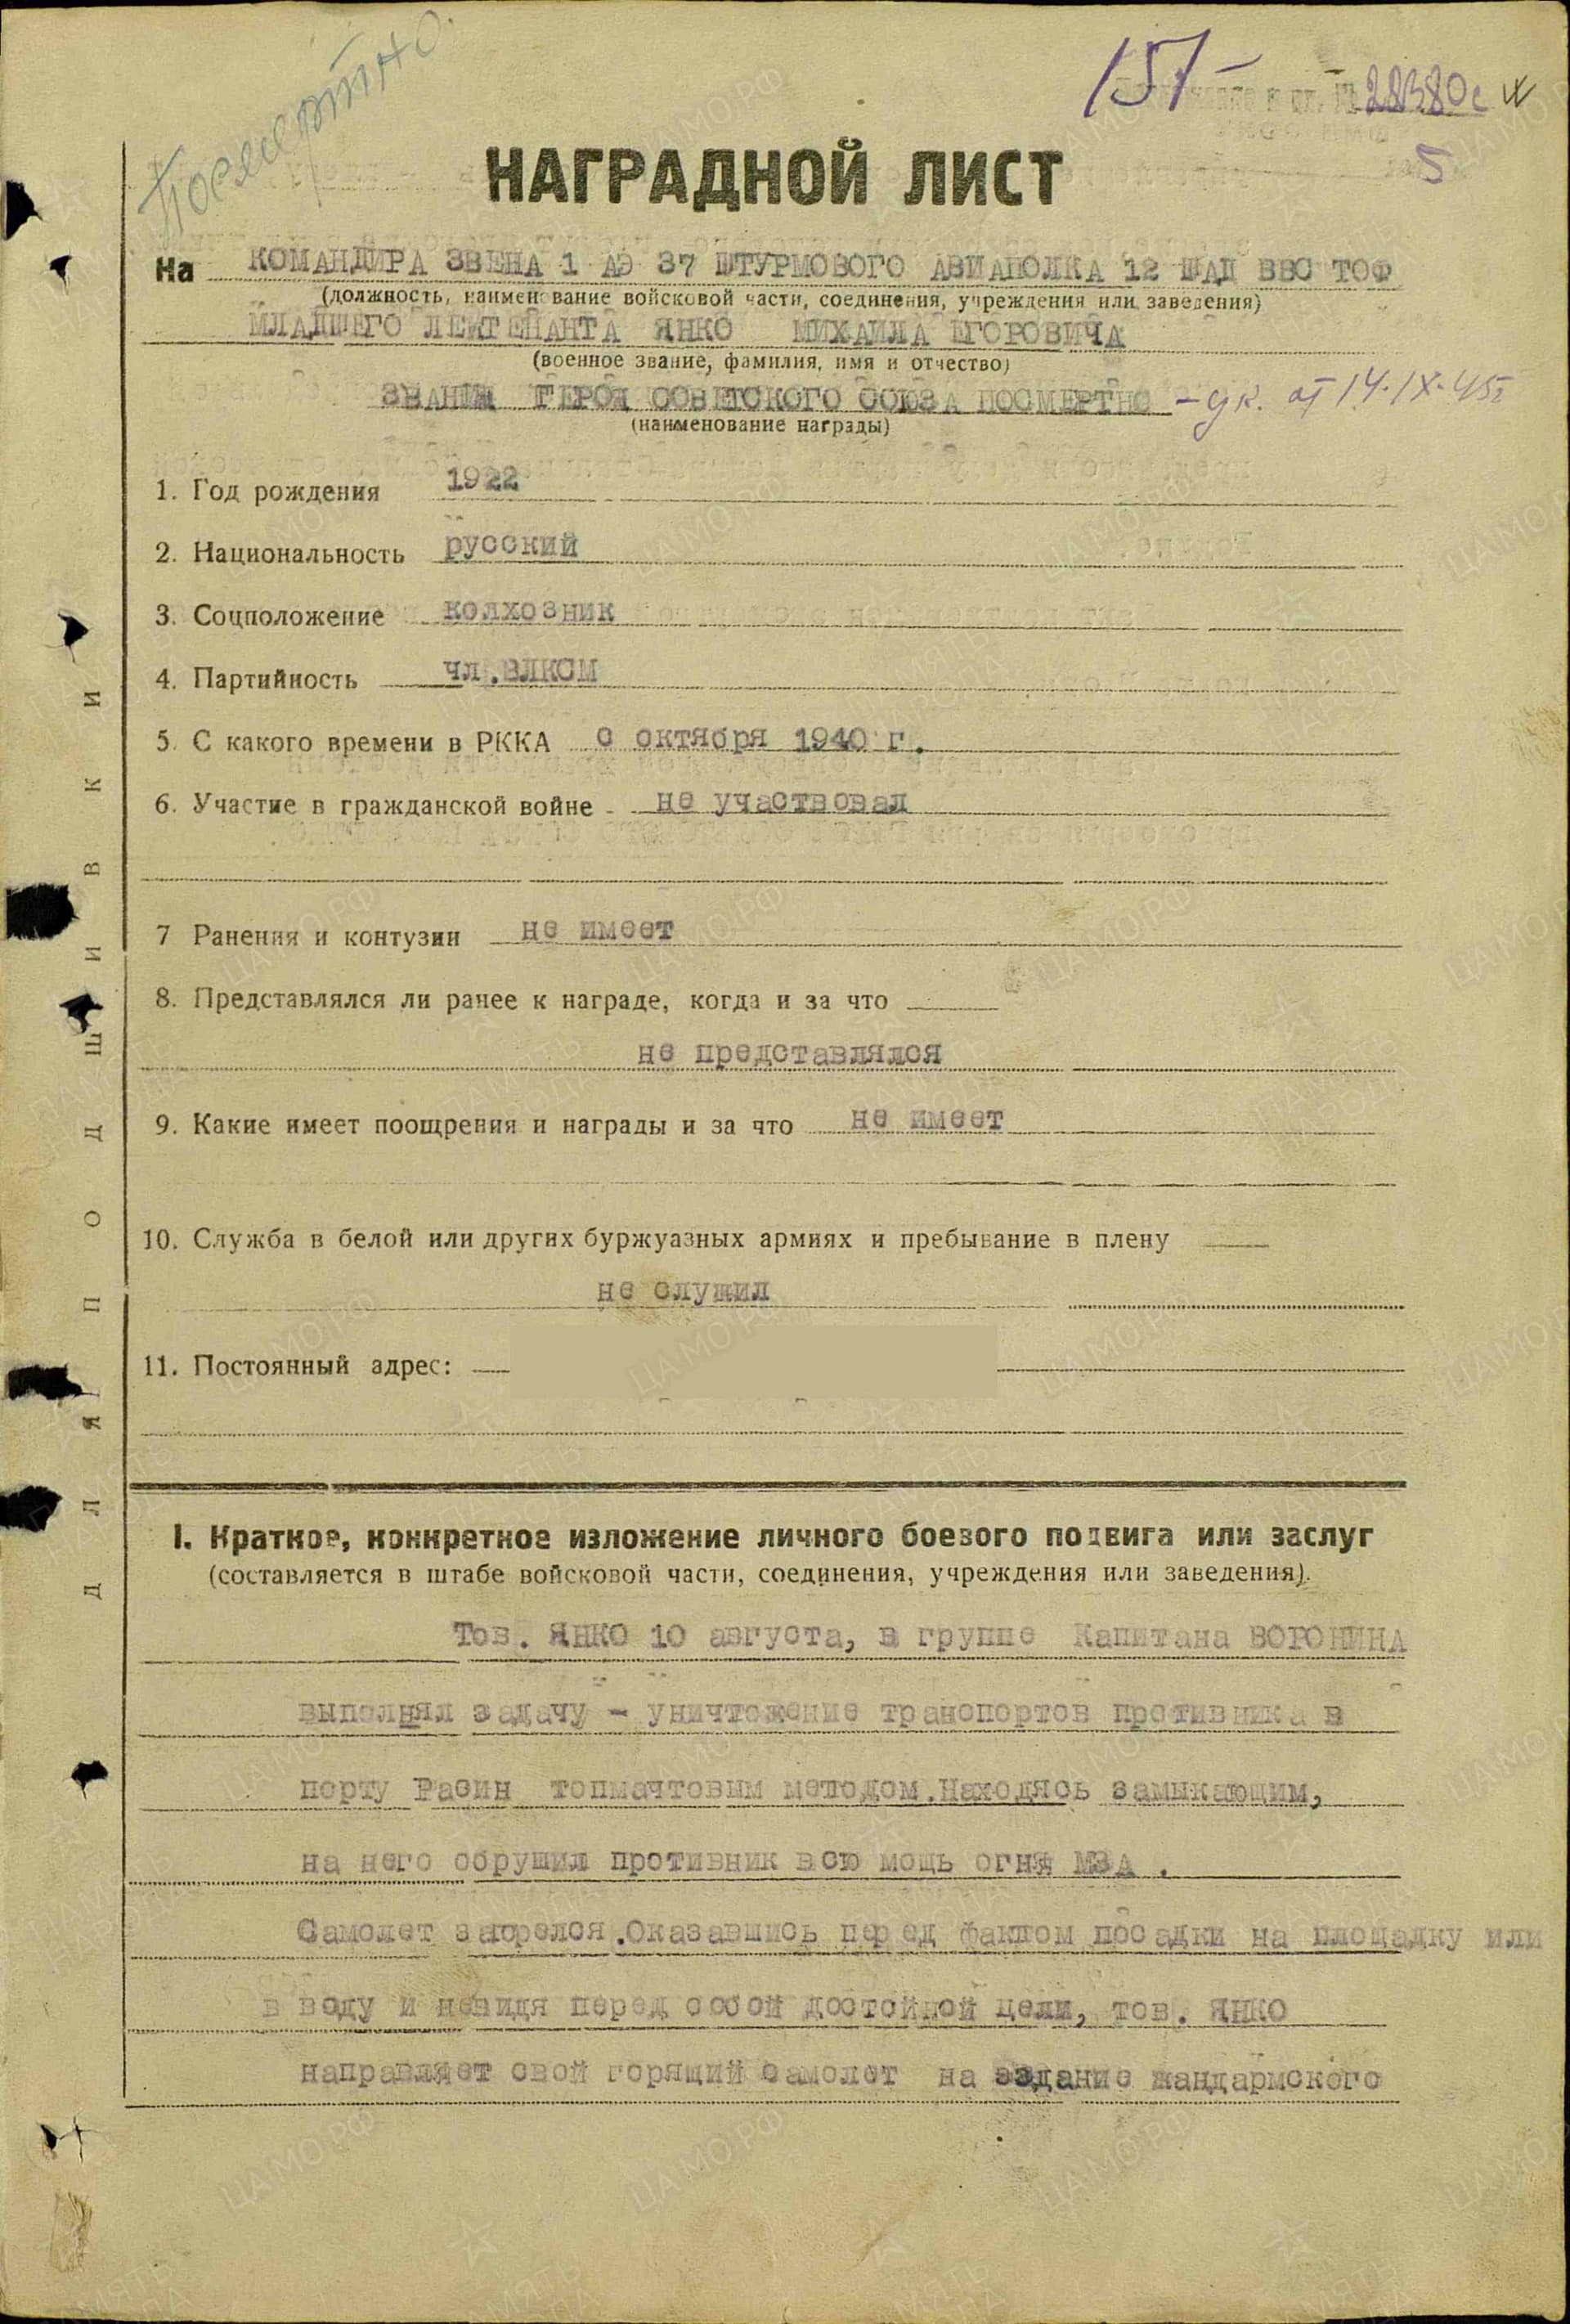 Посмертно.
151 28380с
5
НАГРАДНОЙ ЛИСТ
На КОМАНДИРА ЗВЕНА 1 АЭ 37 ШТУРМОВОГО АВИАПОЛКА 12 ШАД ВВС ТОФ
(должность, наименование войсковой части, соединения, учреждения или заведения)
МЛАДШЕГО ЛЕЙТЕНАНТА ЯНКО МИХАИЛА ЕГОРОВИЧА
(военное звание, фамилия, имя и отчество)
ЗВАНИЯ ГЕРОЯ СОВЕТСКОГО СОЮЗА ПОСМЕРТНО - ук. от 14.IX.45г
(наименование награды)
1. Год рождения 1922
2. Национальность русский
3. Соцположение колхозник
4. Партийность чл.ВЛКСМ
5. С какого времени в РККА с октября 1940 г.
6. Участие в гражданской войне - не участвовал
7 Ранения и контузии не имеет
8. Представлялся ли ранее к награде, когда и за что
не представлялся
9. Какие имеет поощрения и награды и за что не имеет
10. Служба в белой или других буржуазных армиях и пребывание в плену
не служил
11. Постоянный адрес:
ДЛЯ ПОДШИВКИ
I. Краткое, конкретное изложение личного боевого подвига или заслуг
(составляется в штабе войсковой части, соединения, учреждения или заведения).
Тов. ЯНКО 10 августа, в группе Капитана ВОРОНИНА
выполнял задачу - уничтожение транспортов противника в
порту Расин топмачтовым методом.Находясь замыкающим,
на него обрушил противник всю мощь огня МЗА .
Самолет загорелся.Оказавшись перед фактом посадки на площадку или
в воду и невидя перед собой достойной цели, тов. ЯНКО
направляет свой горящий самолет на здание жандармского